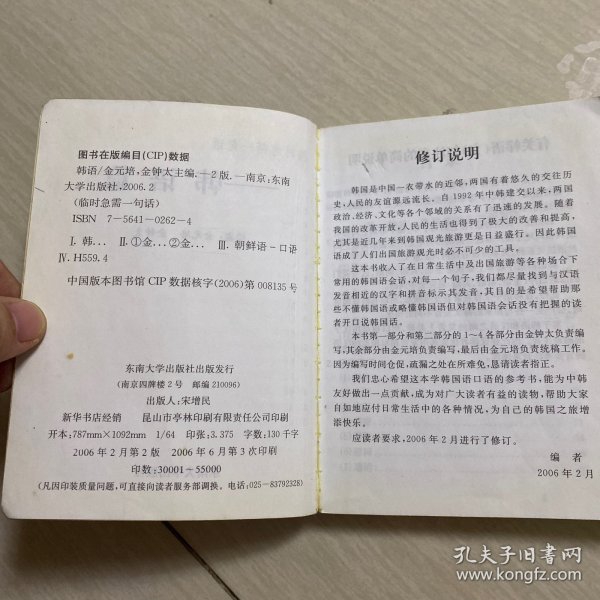 图书在版编目(CIP)数据
韩语/金元培,金钟太主编.—2版.—南京:东南
大学出版社,2006.2
(临时急需一句话)
ISBN 7-5641-0262-4
Ⅰ.韩… Ⅱ.①金…②金… Ⅲ.朝鲜语-口语
Ⅳ.H559.4
中国版本图书馆CIP数据核字(2006)第008135号
东南大学出版社出版发行
(南京四牌楼2号 邮编210096)
出版人:宋增民
新华书店经销 昆山市亭林印刷有限责任公司印刷
开本:787mm×1092mm 1/64 印张:3.375 字数:130千字
2006年2月第2版 2006年6月第3次印刷
印数:30001-55000
(凡因印装质量问题,可直接向读者服务部调换。电话:025-83792328)
修订说明
韩国是中国一衣带水的近邻,两国有着悠久的交往历
史,人民的友谊源远流长。自1992年中韩建交以来,两国
政治、经济、文化等各个邻域的关系有了迅速的发展。随着
我国的改革开放,人民的生活也得到了极大的改善和提高,
尤其是近几年来到韩国观光旅游更是日益盛行。因此韩国
语成了人们出国旅游观光时必不可少的工具。
这本书收入了在日常生活中及出国旅游等各种场合下
常用的韩国语会话,对每一个句子,我们都尽量找到与汉语
发音相近的汉字和拼音标示其发音,其目的是希望帮助那
些不懂韩国语或略懂韩国语但对韩国语会话没有把握的读
者开口说韩国话。
本书第一部分和第二部分的1~4各部分由金钟太负责编
写,其余部分由金元培负责编写,最后由金元培负责统稿工作。
因为编写时间仓促,疏漏之处在所难免,恳请读者指正。
我们忠心希望这本学韩国语口语的参考书,能为中韩
友好做出一点贡献,成为对广大读者有益的读物,帮助大家
自如地应付日常生活中的各种情况,为自己的韩国之旅增
添快乐。
应读者要求,2006年2月进行了修订。
编 者
2006年2月
孔夫子旧书网
www.kongfz.com